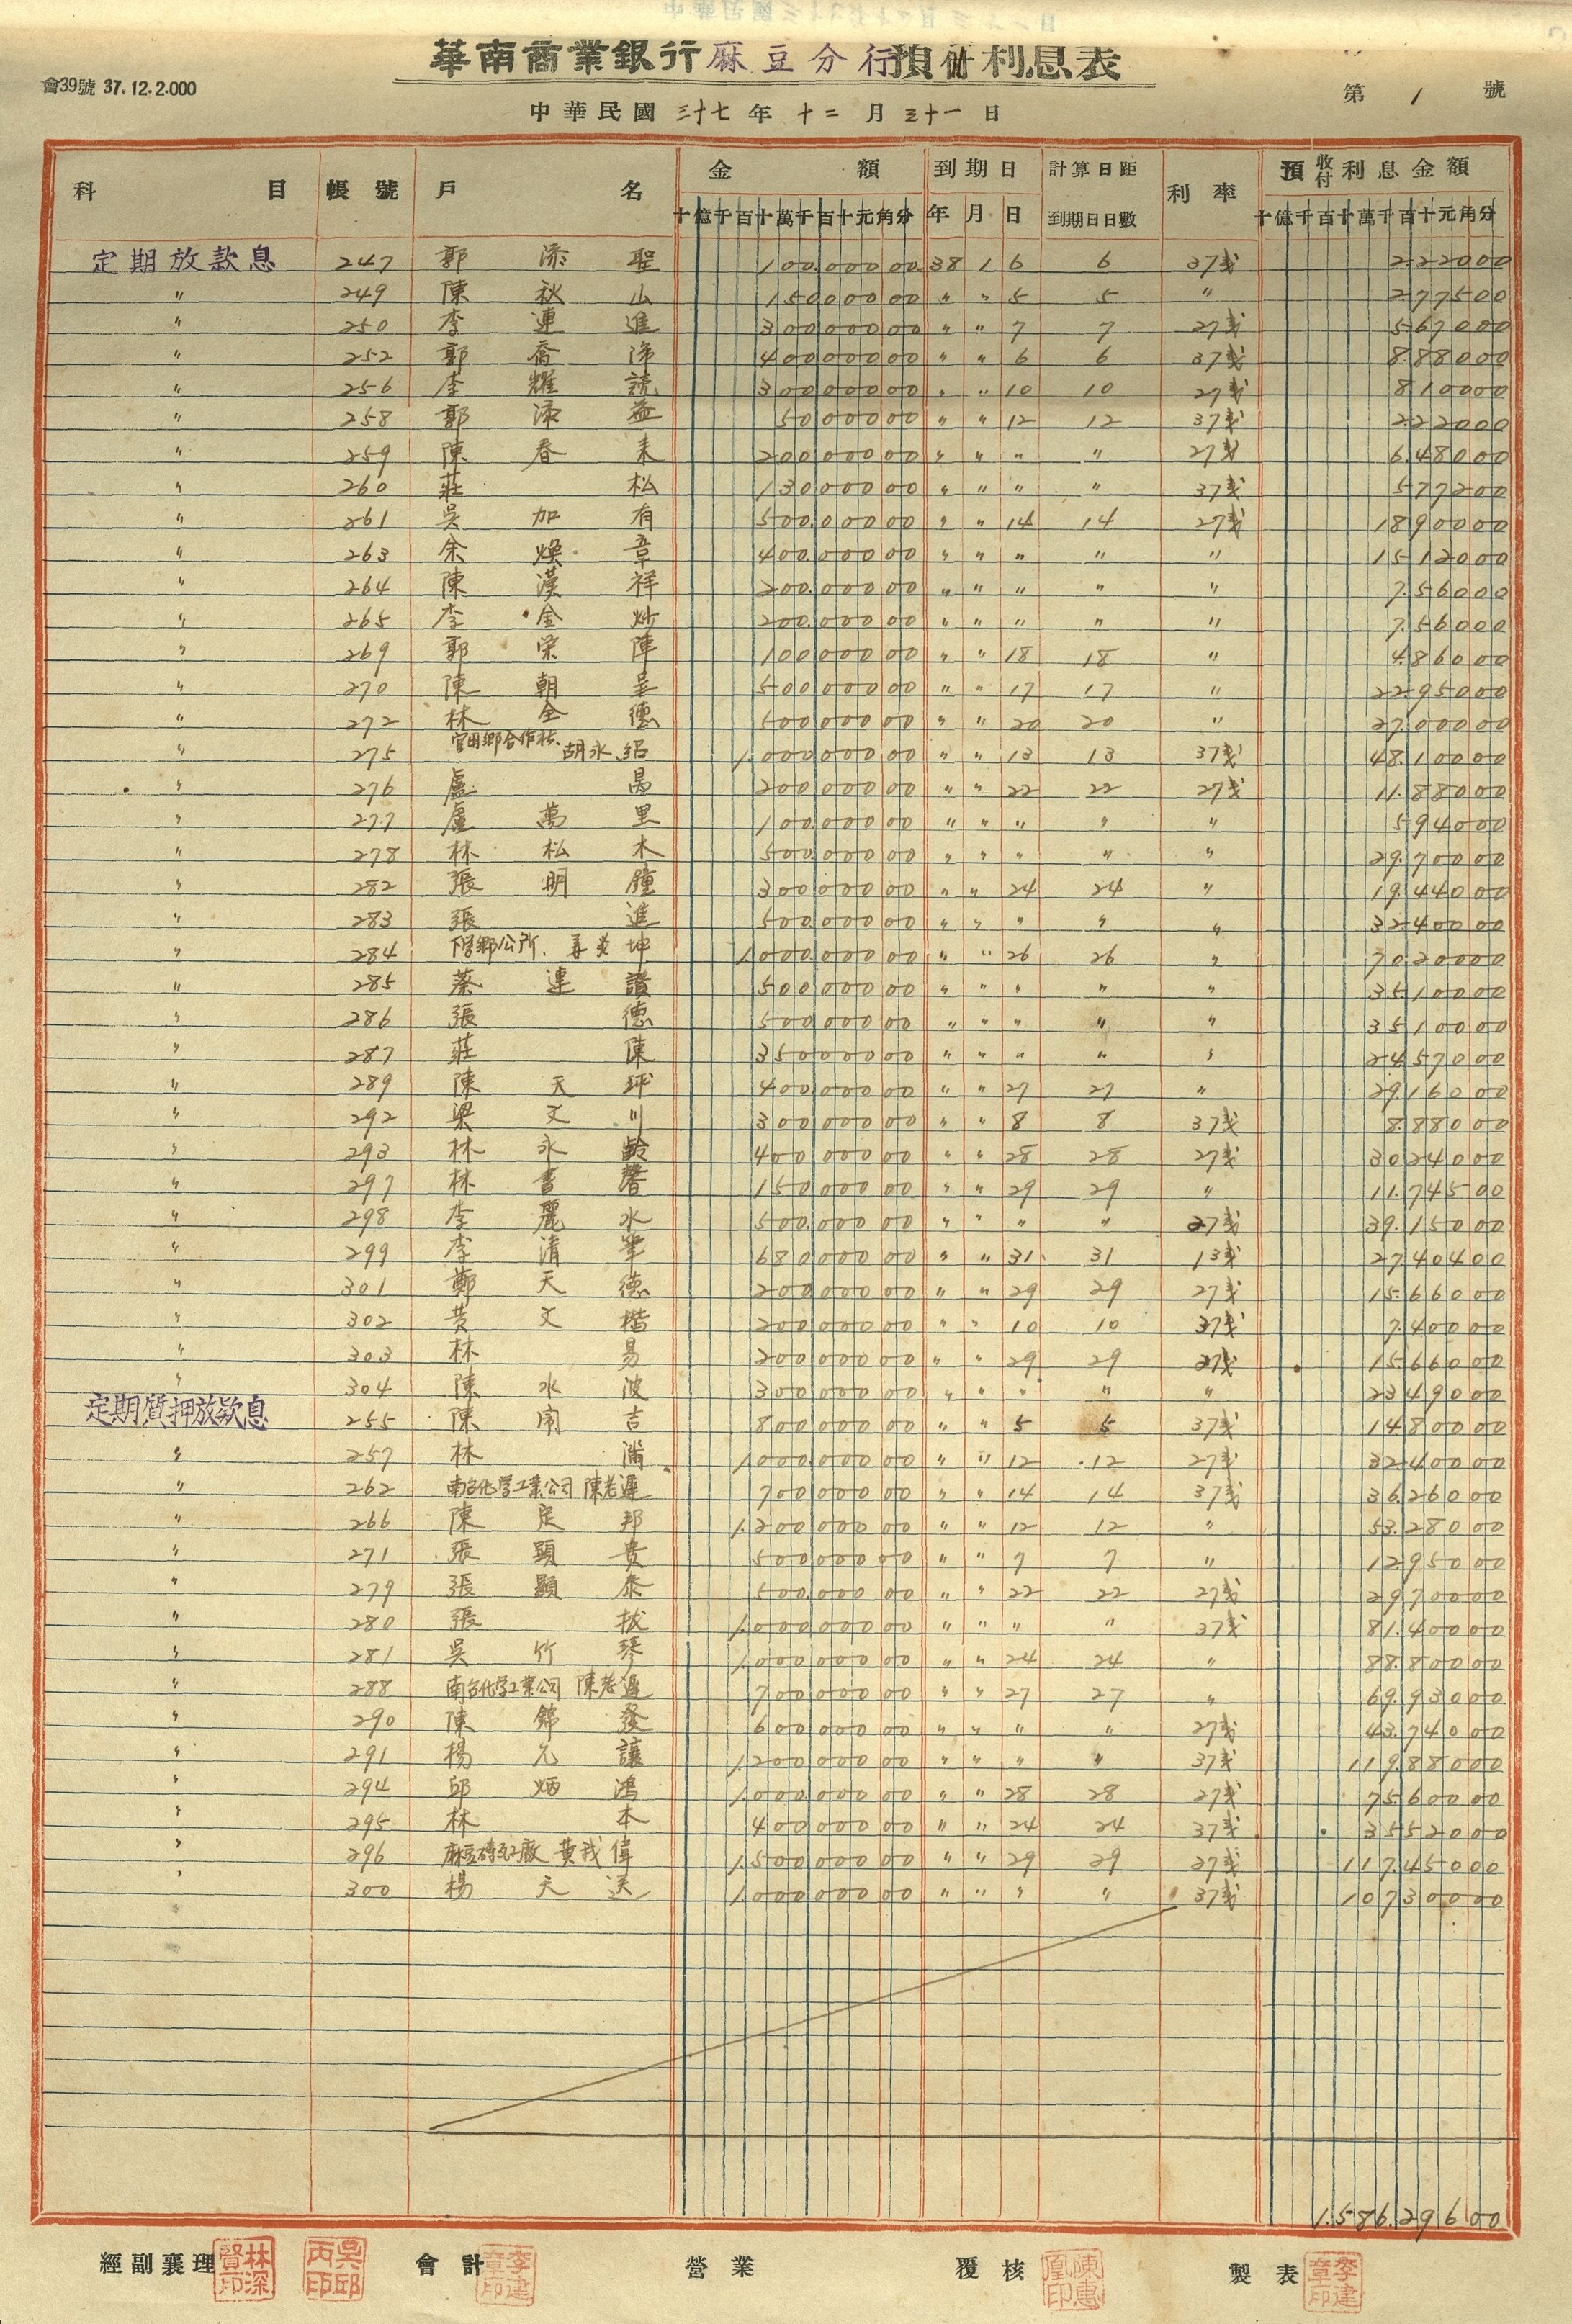 華南商業銀行麻豆分行預付利息表
會39號 37.12.2.000
中華民國三十七年十二月三十一日
第 1 號
科目 帳號 戶名 金額 到期日 計算日距到期日日數 利率 預收付利息金額
十億千百十萬千百十元角分 年月日 十億千百十萬千百十元角分
定期放款息 247 郭添聖 100.000 00 38 1 6 6 37戋 2.220 00
〃 249 陳秋山 150000 00 〃 〃 5 5 〃 2.775 00
〃 250 李連進 300000 00 〃 〃 7 7 27戋 5.670 00
〃 252 郭喬 400000 00 〃 〃 6 6 37戋 8.880 00
〃 256 李耀 300000 00 〃 〃 10 10 27戋 8100 00
〃 258 郭添益 50000 00 〃 〃 12 12 37戋 2.220 00
〃 259 陳春來 200000 00 〃 〃 〃 〃 27戋 6.480 00
〃 260 莊松 130000 00 〃 〃 〃 〃 37戋 5772 00
〃 261 吳加有 500.000 00 〃 〃 14 14 27戋 18900 00
〃 263 余煥章 400.000 00 〃 〃 〃 〃 〃 15120 00
〃 264 陳漢祥 200.000 00 〃 〃 〃 〃 〃 7.560 00
〃 265 李金炒 200.000 00 〃 〃 〃 〃 〃 7.560 00
〃 269 郭榮陣 100000 00 〃 〃 18 18 〃 4.860 00
〃 270 陳朝 500000 00 〃 〃 17 17 〃 22950 00
〃 272 林全德 500000 00 〃 〃 20 20 〃 27.000 00
〃 275 官田鄉合作社、胡永紹 1.000000 00 〃 〃 13 13 37戋 48.100 00
〃 276 盧昺 200000 00 〃 〃 22 22 27戋 11.880 00
〃 277 盧萬里 100.000 00 〃 〃 〃 〃 〃 5940 00
〃 278 林松木 500.000 00 〃 〃 〃 〃 〃 29.700 00
〃 282 張明鐘 300000 00 〃 〃 24 24 〃 19.440 00
〃 283 張進 500.000 00 〃 〃 〃 〃 〃 32400 00
〃 284 下營鄉公所、 坤 1.000.000 00 〃 〃 26 26 〃 70200 00
〃 285 蔡連讚 500000 00 〃 〃 〃 〃 〃 35100 00
〃 286 張德 500000 00 〃 〃 〃 〃 〃 35100 00
〃 287 莊陳 350000 00 〃 〃 〃 〃 〃 24570 00
〃 289 陳天坪 400.000 00 〃 〃 27 27 〃 29160 00
〃 292 梁文川 300000 00 〃 〃 8 8 37戋 8.880 00
〃 293 林永齡 400000 00 〃 〃 28 28 27戋 30240 00
〃 297 林書馨 150000 00 〃 〃 29 29 〃 11.745 00
〃 298 李麗水 500.000 00 〃 〃 〃 〃 27戋 39.150 00
〃 299 李清 680000 00 〃 〃 31 31 13戋 27.404 00
〃 301 鄭天德 200000 00 〃 〃 29 29 27戋 15.660 00
〃 302 黃文楷 200000 00 〃 〃 10 10 37戋 7.400 00
〃 303 林易 200000 00 〃 〃 29 29 27戋 15.660 00
〃 304 陳水波 300000 00 〃 〃 〃 〃 〃 23490 00
定期質押放款息 255 陳吉 800000 00 〃 〃 5 5 37戋 14800 00
〃 257 林滿 1.000.000 00 〃 〃 12 12 27戋 32400 00
〃 262 南台化學工業公司 陳老遲 700000 00 〃 〃 14 14 37戋 36.260 00
〃 266 陳定邦 1.200000 00 〃 〃 12 12 〃 53.280 00
〃 271 張顕貴 500000 00 〃 〃 7 7 〃 12950 00
〃 279 張顕泰 500.000 00 〃 〃 22 22 27戋 29700 00
〃 280 張拔 1.000000 00 〃 〃 〃 〃 37戋 81.400 00
〃 281 吳竹琴 1.000000 00 〃 〃 24 24 〃 88.800 00
〃 288 南台化学工業公司 陳老遲 700000 00 〃 〃 27 27 〃 69.930 00
〃 290 陳錦發 600000 00 〃 〃 〃 〃 27戋 43.740 00
〃 291 楊允讓 1.200000 00 〃 〃 〃 〃 37戋 119.880 00
〃 294 邱炳鴻 1.000.000 00 〃 〃 28 28 27戋 75.600 00
〃 295 林本 400000 00 〃 〃 24 24 37戋 35520 00
〃 296 麻豆磚瓦工廠 黃我偉 1.500000 00 〃 〃 29 29 27戋 117.450 00
〃 300 楊天送 1.000000 00 〃 〃 〃 〃 37戋 107300 00
1.586.296 00
經副襄理 林深賢印 吳邱丙印 會計 李建章印 營業 覆核 陳惠凰印 製表 李建章印